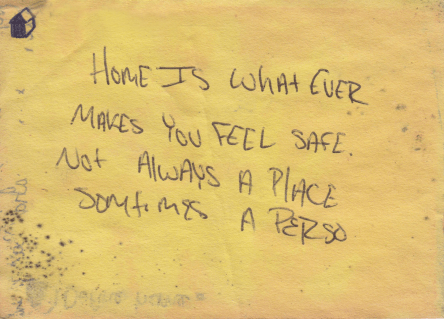 HOME IS WHAT EVER
MAKES YOU FEEL SAFE.
NOT ALWAYS A PLACE
SOMTIMES A PERSO